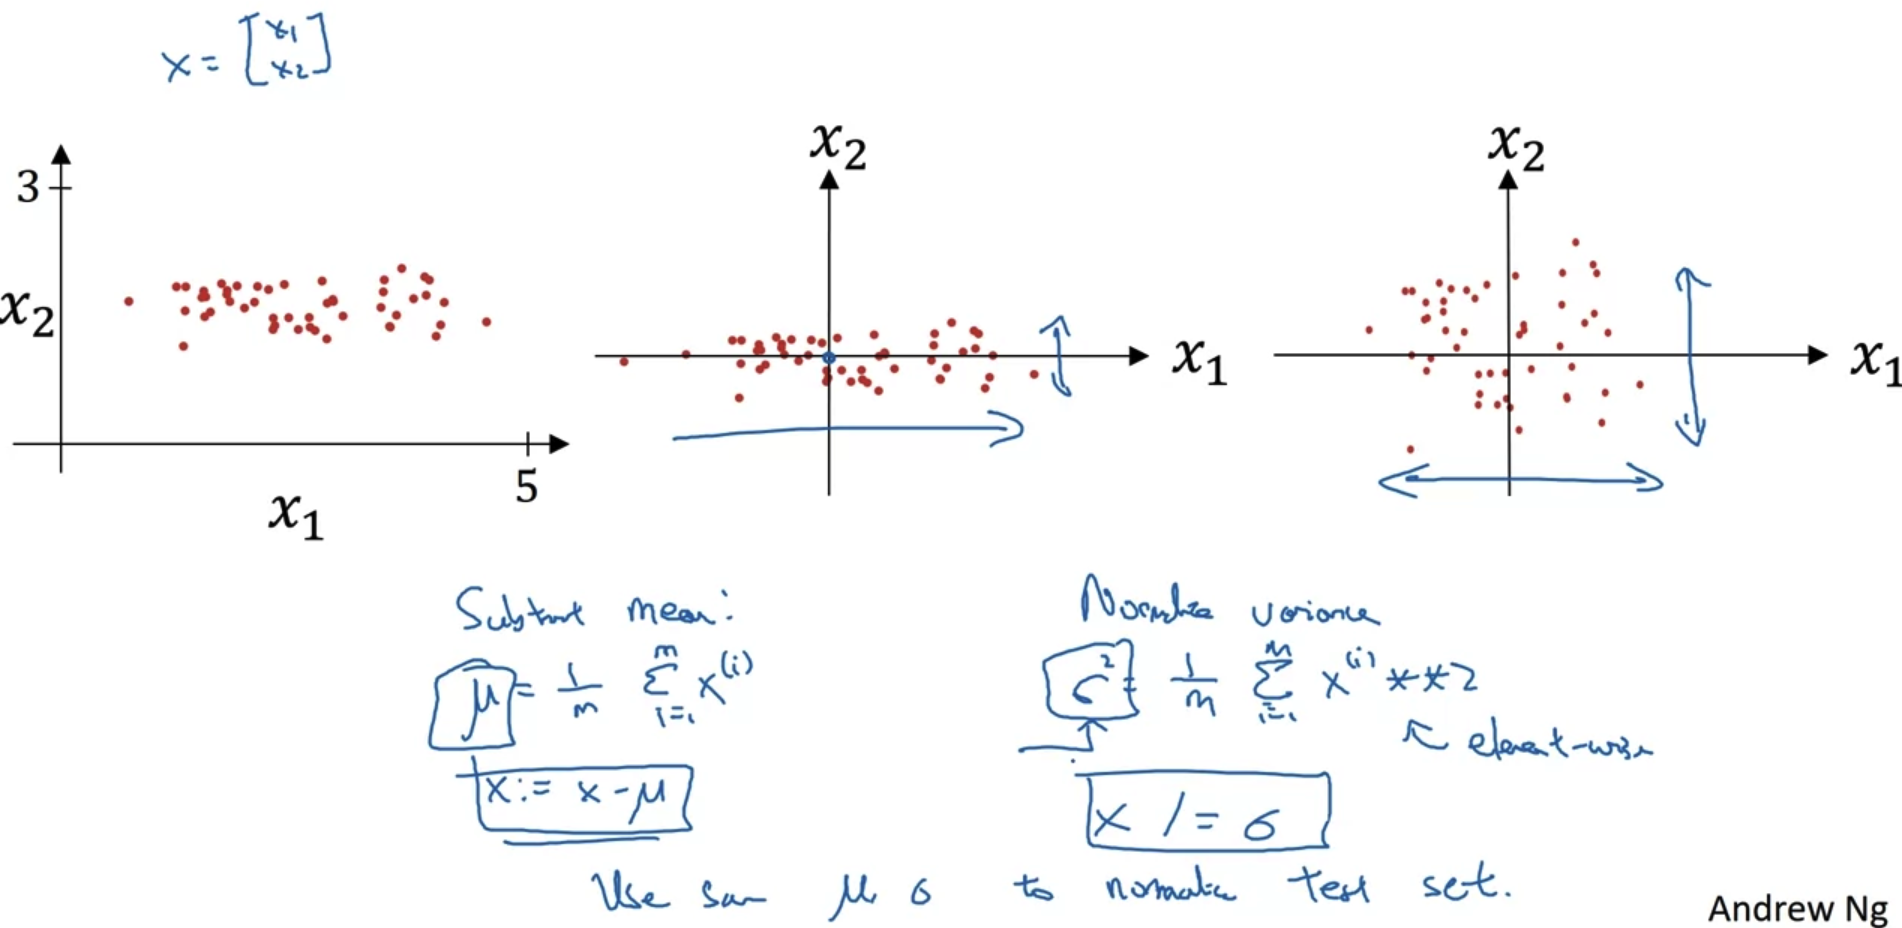 x = [x1
x2]
3
x2
5
x1
x2
x1
x2
x1
Subtract mean:
μ = 1/m Σ_{i=1}^{m} x^(i)
x := x - μ
Normalize variance
σ² = 1/m Σ_{i=1}^{m} x^(i) **2
element-wise
x /= σ
Use same μ, σ to normalize test set.
Andrew Ng